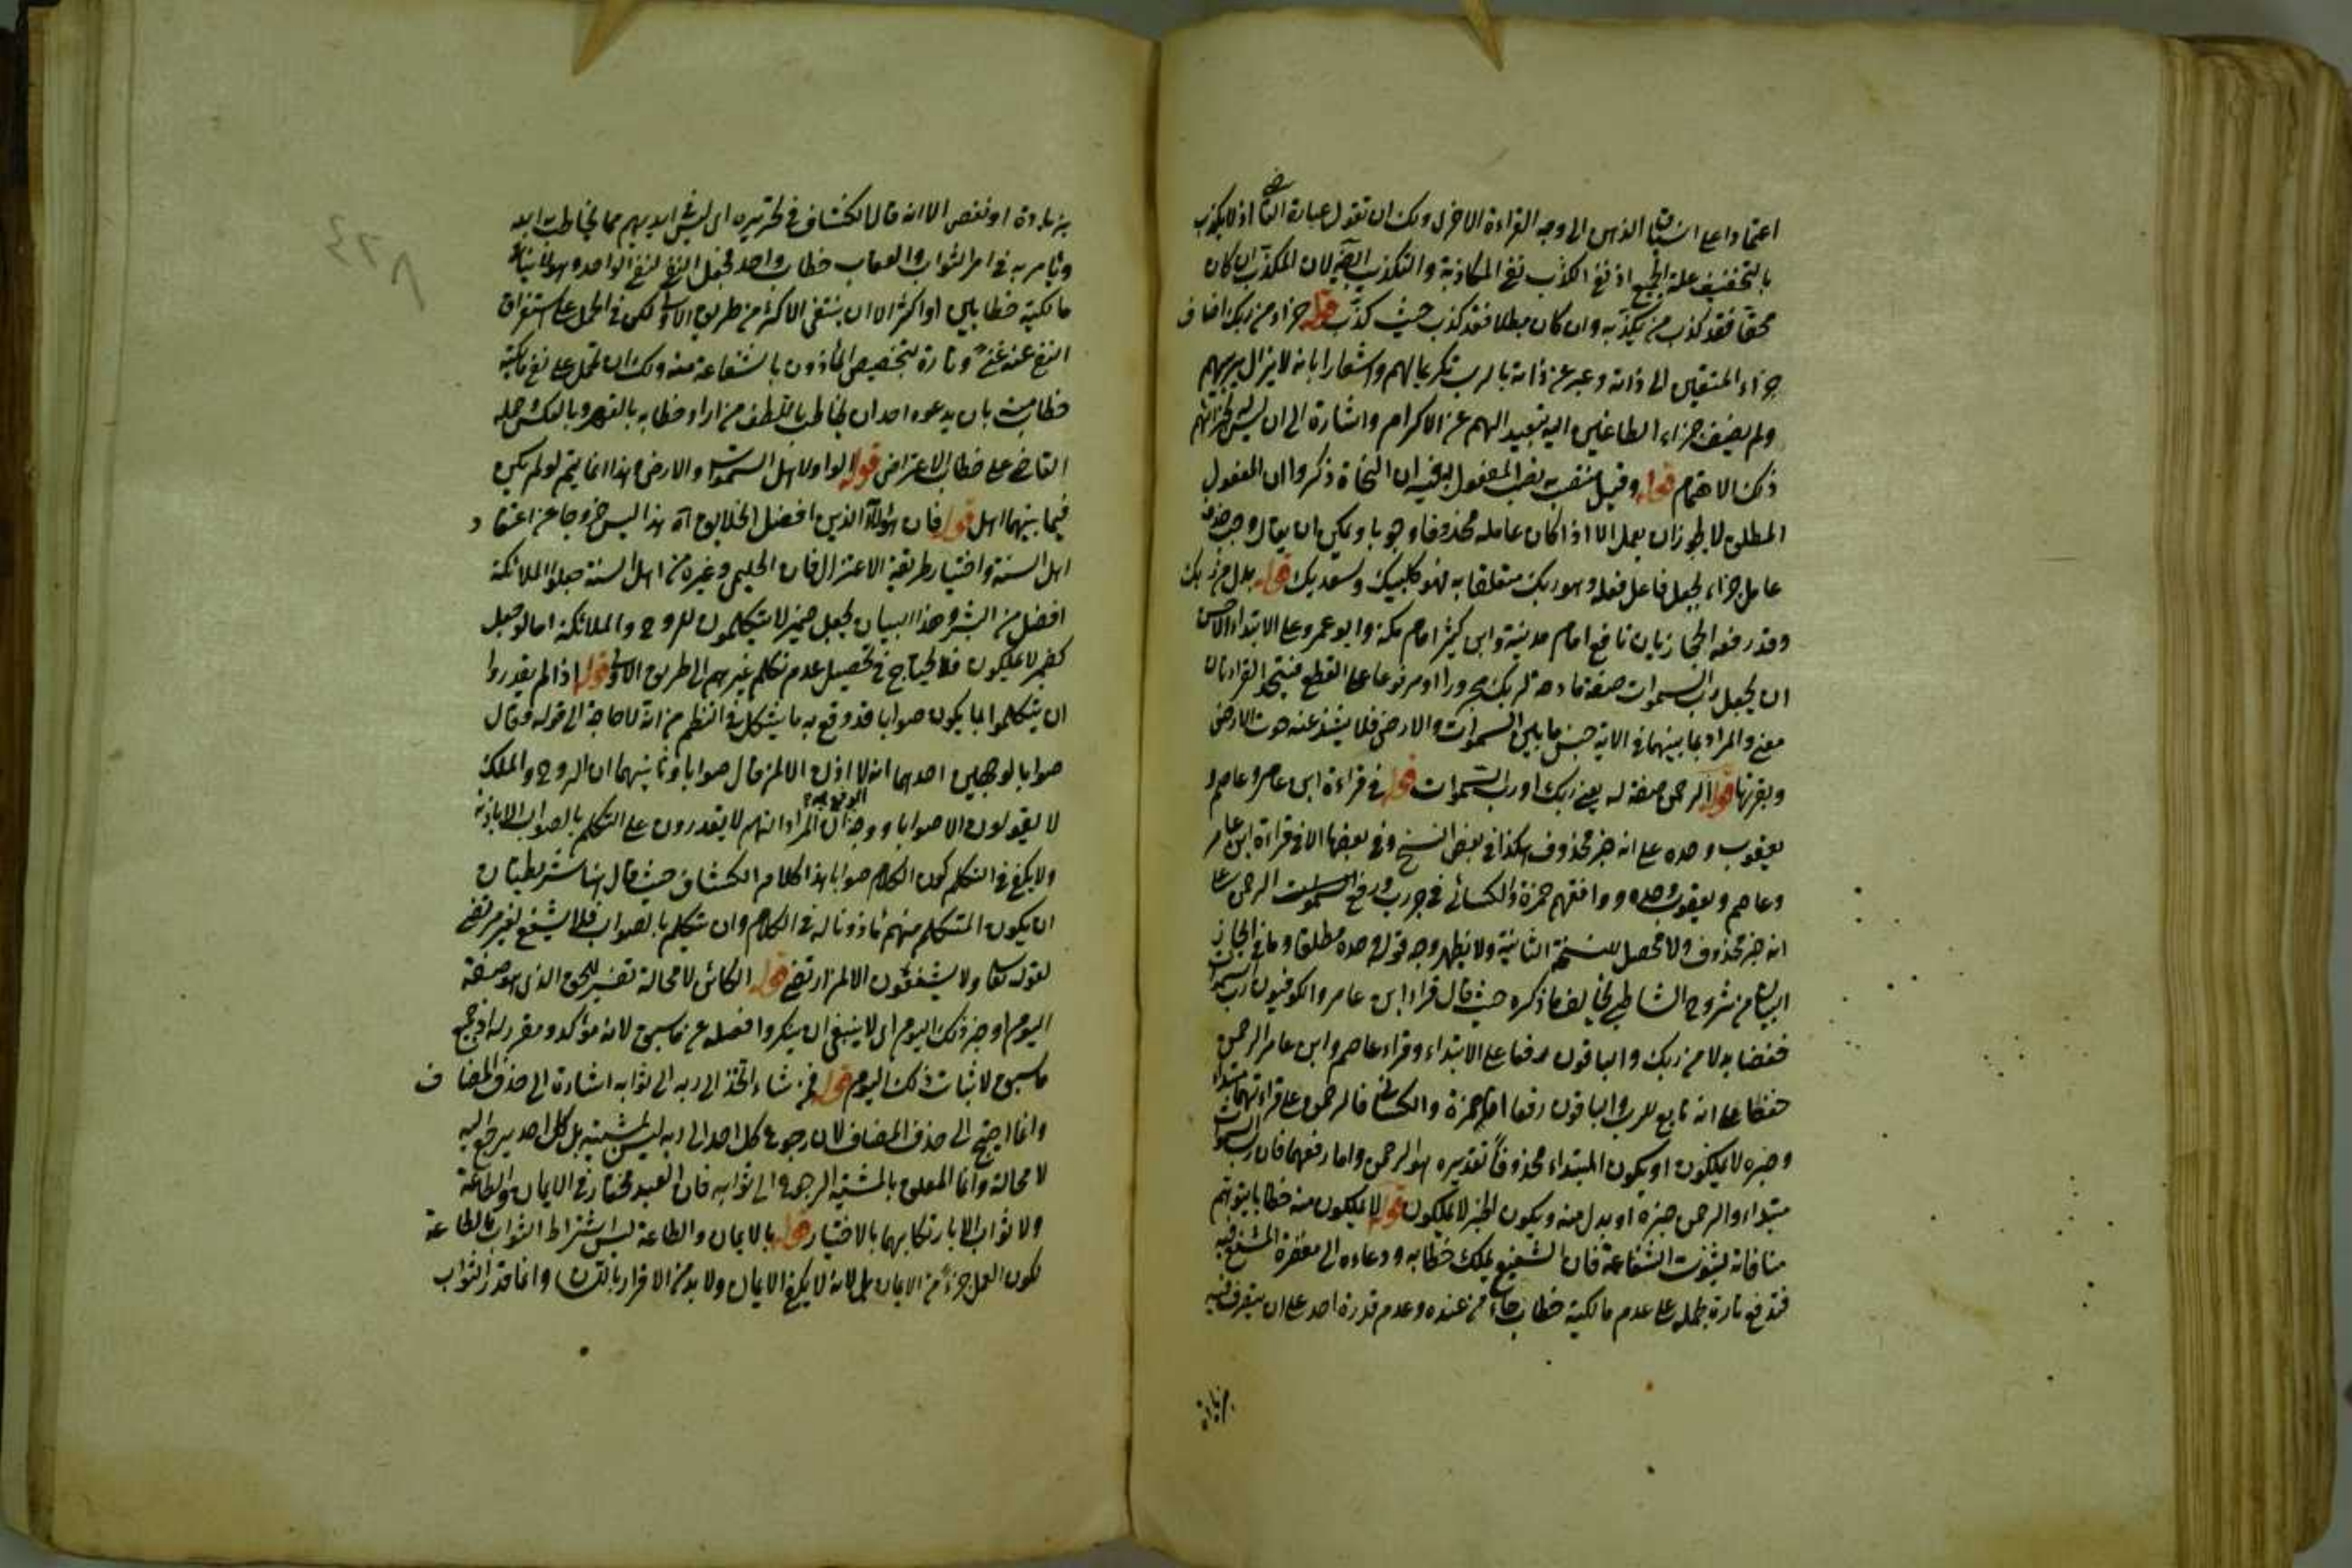 اعتمادا على انسياق الذهن الى وجه القراءة الاخرى ولك ان تقول عبارة القاضي اذ لا يكذب
بالتخفيف علة الجميع اذ نفى الكذب نفى المكاذبة والتكذيب ايضا لان المكذب ان كان
محقا فقد كذب من يكذبه وان كان مبطلا فقد كذب حيث كذب قوله جزاء من ربك اضاف
جزاء المتقين الى ذاته وعبر عن ذاته بالرب تكريما لهم واشعارا بانه لا يزال يربيهم
ولم يضف جزاء الطاغين اليه تبعيدا لهم عن الاكرام واشارة الى ان ليس له بجزائهم
ذلك الاهتمام قوله وقيل منتصب به نصب المفعول به فيه ان النحاة ذكروا ان المفعول
المطلق لا يجوز ان يعمل الا اذا كان عامله محذوفا وجوبا ويمكن ان يقال وجب حذف
عامل جزاء لجعل فاعل فعله وهو ربك متعلقا به فهو كلبيك وسعديك قوله بدل من ربك
وقد رفعه الحجازيان نافع امام مدينة وابن كثير امام مكة وابو عمرو على الابتداء الاحسن
ان يجعل رب السموات صفة مادحة لربك مجرورا او مرفوعا على القطع فيتحد القراءتان
معنى والمراد بما بينهما في الاية جنس ما بين السموات والارض فلا يشذ عنه حوت الارض
وبقرتها قوله الرحمن صفة له يعنى ربك او رب السموات قوله في قراءة ابن عامر وعاصم و
يعقوب وحده على انه خبر محذوف هكذا في بعض النسخ وفي بعضها الا في قراءة ابن عامر
وعاصم ويعقوب وحده ووافقهم حمزة والكسائي في جر رب ورفع الرحمن على
انه خبر محذوف ولا محصل للنسخة الثانية ولا يظهر وجه قوله وحده مطلقا وما في الجاز
من شروح الشاطبي يخالف ما ذكره حيث قال قراء ابن عامر والكوفيون رب السموات
فخفضا بدلا من ربك والباقون رفعا على الابتداء وقراء عاصم وابن عامر الرحمن
خفضا على انه تابع للرب والباقون رفعا اما حمزة والكسائي فالرحمن على قراءتهما مبتداء
وخبره لا يملكون او يكون المبتداء محذوفا تقديره هو الرحمن واما رفعهما فان رب السموات
مبتداء والرحمن خبره او بدل منه ويكون الخبر لا يملكون قوله لا يملكون منه خطابا يتوهم
منافاته لثبوت الشفاعة فان الشفيع يملك خطابه ودعاءه الى مغفرة المشفع فيه
فتدفع تارة بحمله على عدم مالكية خطاب من عنده وعدم قدرة احد على ان يتصرف فيه
بزيادة
بزيادة او نقص الا انه قال الكشاف في تحريره اى ليس في ايديهم مما يخاطب به الله
ويأمر به في امر الثواب والعقاب خطاب واحد فجعل النفى لنفى الواحد وهو لا ينافى
مالكية خطابين او اكثر الا ان ينتفى الاكثر من طريق الاولى لكن في الحمل على استغراق
النفى عنه غنى وتارة بتخصيص المأذون بالشفاعة منه ولك ان تحمل على نفى مالكية
خطابه بان يدعوه احد ان يخاطب باللطف من اراد خطابه بالقهر وبالعكس حمله
القاضي على خطاب الاعتراض قوله الواو لاهل السموات والارض هذا انما يتم لو لم يكن
فيما بينهما اهل قوله فان هؤلاء الذين افضل الخلايق آه هذا ليس خروجا عن اعتقاد
اهل السنة واختيار طريقة الاعتزال فان الحليمى وغيره من اهل السنة جعلوا الملائكة
افضل من البشر وهذا البيان يجعل ضمير لا يتكلمون للروح والملائكة اما لو جعل
كضمير لا يملكون فلا يحتاج في تحصيل عدم تكلم غيرهم الى طريق الاولى قوله اذا لم يقدروا
ان يتكلموا بما يكون صوابا فدفع به ما يشكل في النظم من انه لا حاجة الى قوله وقال
صوابا لوجهين احدهما انه لا اذن الا لمن قال صوابا وثانيهما ان الروح والملك
لا يقولون الا صوابا ووجه الدفع ان المراد انهم لا يقدرون على التكلم بالصواب الا باذنه
ولا يكفى في التكلم كون الكلام صوابا هذا كلام الكشاف حيث قال هنا شريطتان
ان يكون المتكلم منهم مأذونا له في الكلام وان يتكلم بالصواب فلا يشفع لغير مرتضى
لقوله تعالى ولا يشفعون الا لمن ارتضى قوله الكائن لا محالة تفسير للحق الذى هو صفة
اليوم او خبر ذلك اليوم اى لا ينبغى ان ينكر وافصله عن ما سبق لانه مؤكد ومقرر له اذ جميع
ما سبق لاثبات ذلك اليوم قوله فمن شاء اتخذ الى ربه الى ثوابه اشارة الى حذف المضاف
وانما احتيج الى حذف المضاف لان رجوع كل احد الى ربه ليس بمشيته بل كل احد يرجع اليه
لا محالة وانما المعلق بالمشية الرجوع الى ثوابه فان العبد مختار في الايمان والطاعة
ولا ثواب الا بارتكابهما بالاختيار قوله بالايمان والطاعة ليس اشتراط الثواب بالطاعة
لكون العمل جزءا من الايمان بل لانه لا يكفى الايمان ولا بد من الاقرار باللسان وانما قدر الثواب